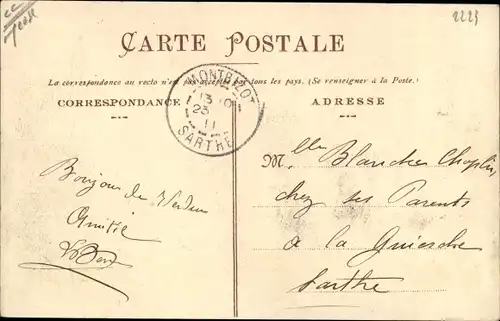 2225
CARTE POSTALE
La correspondance au recto n'est pas acceptée par tous les pays. (Se renseigner à la Poste.)
CORRESPONDANCE
ADRESSE
MONTBIZOT
13
23
11
SARTHE
Mlle Blanche Choplin
chez ses Parents
à la Guierche
Sarthe
Bonjour de
Amitié